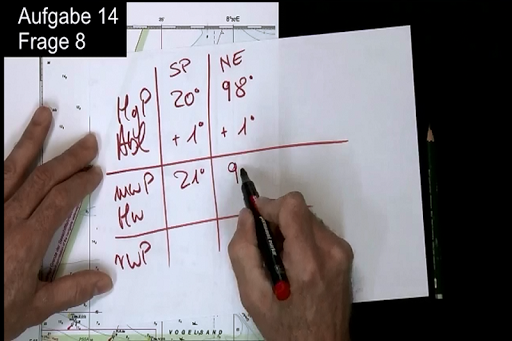 Aufgabe 14
Frage 8
8°30'E
SP NE
MgP 20° 98°
Abl +1° +1°
mwP 21° 9
Mw
rwP
VOGELSAND